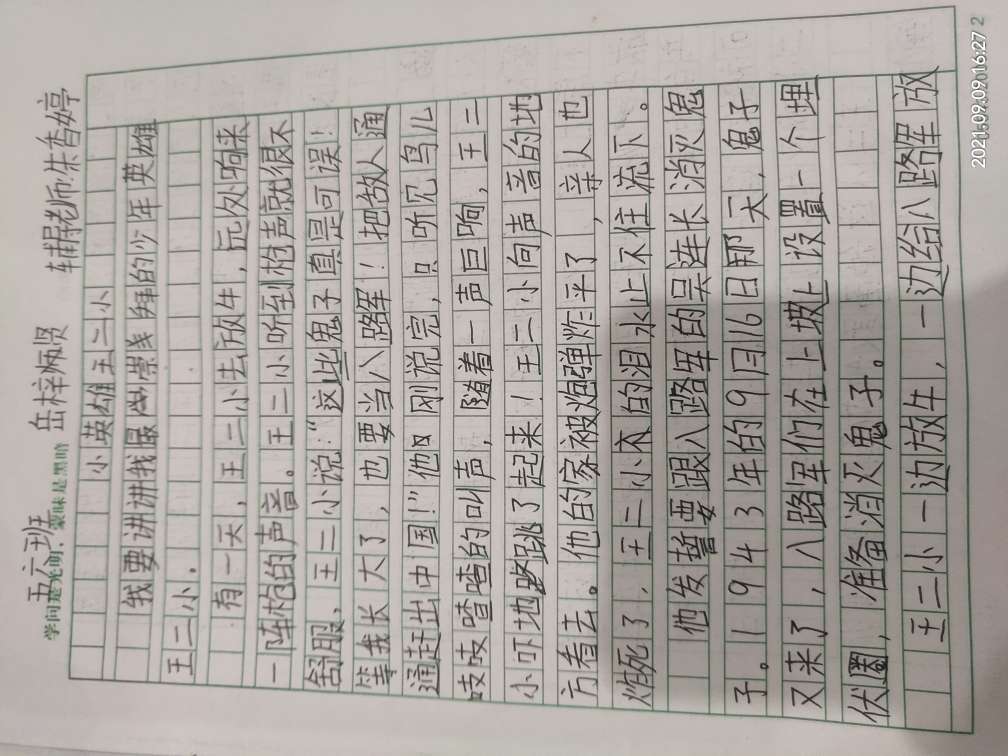 五六班 岳梓炳贤 辅导老师:朱香婷
学问是光明,蒙昧是黑暗
小英雄王二小
我要讲讲我最崇拜的少年英雄
王二小。
有一天,王二小去放牛,远处响来
一阵枪的声音。王二小听到枪声就很不
舒服、王二小说:“这些鬼子真是可误!
等我长大了,也要当八路军!把敌人通
通赶出中国!”他刚说完,只听见鸟儿
吱吱喳喳的叫声,随着一声巨响,王二
小吓地跳了起来!王二小向声音的地
方看去。他的家被炮弹炸平了,亲人也
炸死了.王二小的泪水止不住流下。
他发誓要跟八路军的吴连长消灭鬼
子。1943年的9月16日那一天,鬼子
又来了,八路军们在土坡上设置一个埋
伏圈,准备消灭鬼子。
王二小一边放牛,一边给八路军放
2021.09.09 16:27
2